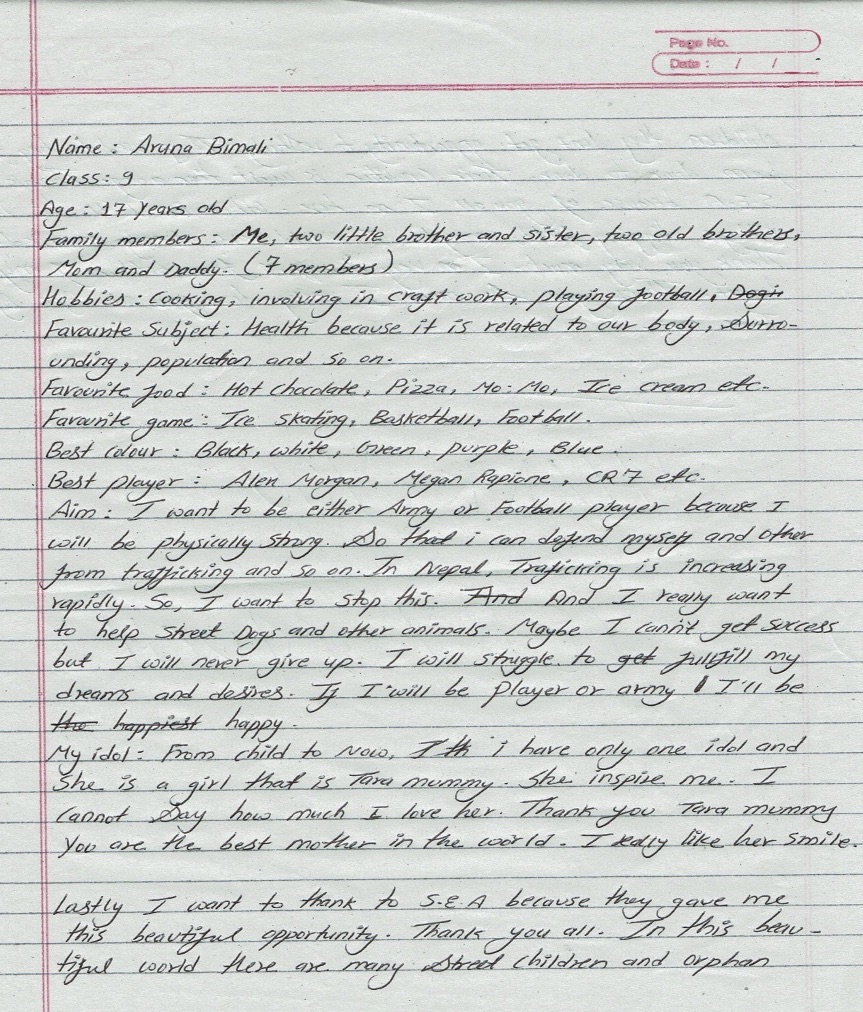 Page No.
Date : / /
Name : Aruna Bimali
Class : 9
Age : 17 Years old
Family members : Me, two little brother and sister, two old brothers,
Mom and Daddy. (7 members)
Hobbies : Cooking, involving in craft work, playing football,
Favourite Subject : Health because it is related to our body, Surro-
unding, population and so on.
Favourite food : Hot chocolate, Pizza, Mo:Mo, Ice cream etc.
Favourite game : Ice Skating, Basketball, Football.
Best colour : Black, white, Green, purple, Blue.
Best player : Alen Morgan, Megan Rapione, CR7 etc.
Aim : I want to be either Army or Football player because I
will be physically strong. So that i can defend myself and other
from trafficking and so on. In Nepal, Traficking is increasing
rapidly. So, I want to stop this. And And I really want
to help Street Dogs and other animals. Maybe I cann't get success
but I will never give up. I will struggle to get fullfill my
dreams and desires. If I will be Player or army I'll be
the happiest happy.
My idol : From child to Now, i have only one idol and
She is a girl that is Tara mummy. She inspire me. I
Cannot Say how much I love her. Thank you Tara mummy
You are the best mother in the world. I really like her Smile.
Lastly I want to thank to S.E.A because they gave me
this beautiful opportunity. Thank you all. In this beau-
tiful world there are many Street Children and orphan